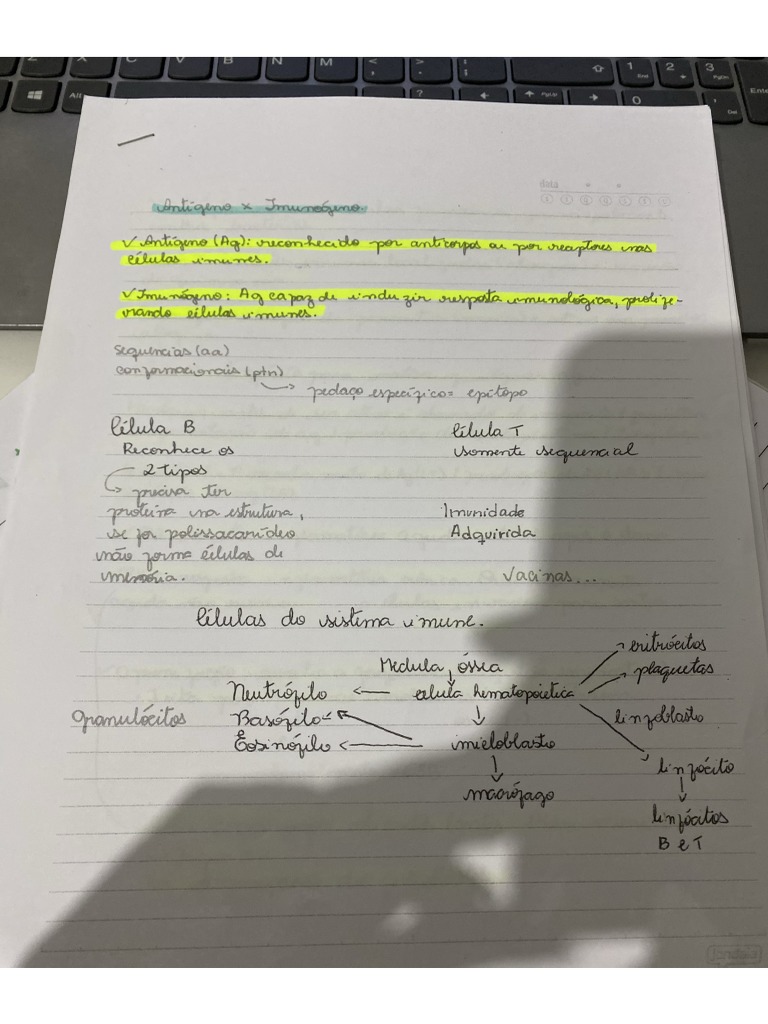 data
Antígeno x Imunógeno.
✓ Antígeno (Ag): reconhecido por anticorpos ou por receptores nas
células imunes.
✓ Imunógeno: Ag capaz de induzir resposta imunológica, prolife-
rando células imunes.
sequencias (aa)
conformacionais (ptn)
→ pedaço específico = epítopo
Célula B
Célula T
Reconhece os
somente sequencial
2 tipos
→ precisa ter
proteína na estrutura,
Imunidade
se for polissacarídeo
Adquirida
não forma células de
memória.
Vacinas...
Células do sistema imune.
Medula óssea
→ eritrócitos
→ plaquetas
Neutrófilo ← célula hematopoiética
Granulócitos
Basófilo ←
linfoblasto
Eosinófilo ← mieloblasto
linfócito
macrófago
linfócitos
B e T
jandaia